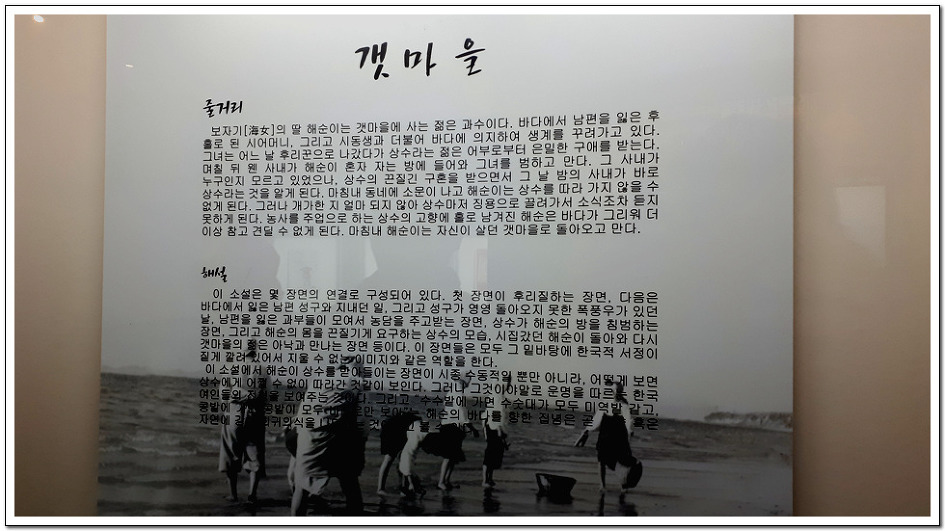 갯마을
줄거리
보자기[海女]의 딸 해순이는 갯마을에 사는 젊은 과수이다. 바다에서 남편을 잃은 후
홀로 된 시어머니, 그리고 시동생과 더불어 바다에 의지하여 생계를 꾸려가고 있다.
그녀는 어느 날 후리꾼으로 나갔다가 상수라는 젊은 어부로부터 은밀한 구애를 받는다.
며칠 뒤 웬 사내가 해순이 혼자 자는 방에 들어와 그녀를 범하고 만다. 그 사내가
누구인지 모르고 있었으나, 상수의 끈질긴 구혼을 받으면서 그 날 밤의 사내가 바로
상수라는 것을 알게 된다. 마침내 동네에 소문이 나고 해순이는 상수를 따라 가지 않을 수
없게 된다. 그러나 개가한 지 얼마 되지 않아 상수마저 징용으로 끌려가서 소식조차 듣지
못하게 된다. 농사를 주업으로 하는 상수의 고향에 홀로 남겨진 해순은 바다가 그리워 더
이상 참고 견딜 수 없게 된다. 마침내 해순이는 자신이 살던 갯마을로 돌아오고 만다.
해설
이 소설은 몇 장면의 연결로 구성되어 있다. 첫 장면이 후리질하는 장면, 다음은
바다에서 잃은 남편 성구와 지내던 일, 그리고 성구가 영영 돌아오지 못한 폭풍우가 있던
날, 남편을 잃은 과부들이 모여서 농담을 주고받는 장면, 상수가 해순의 방을 침범하는
장면, 그리고 해순의 몸을 끈질기게 요구하는 상수의 모습, 시집갔던 해순이 돌아와 다시
갯마을의 젊은 아낙과 만나는 장면 등이다. 이 장면들은 모두 그 밑바탕에 한국적 서정이
짙게 깔려 있어서 지울 수 없는 이미지와 같은 역할을 한다.
이 소설에서 해순이 상수를 받아들이는 장면이 시종 수동적일 뿐만 아니라, 어떻게 보면
상수에게 어쩔 수 없이 따라간 것같이 보인다. 그러나 그것이야말로 운명을 따르는 한국
여인들의 보여주는 것이다. 그리고 "수수밭에 가면 수숫대가 모두 미역밭 같고,
콩밭에 콩밭이 모두 보이는 해순의 바다를 향한 집념은 혹은
자연에